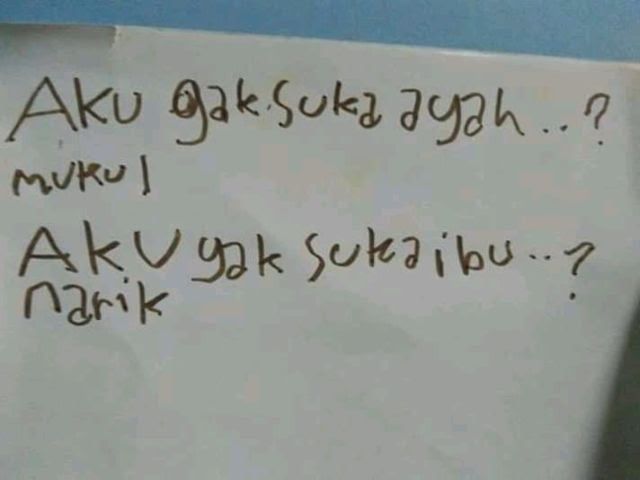 AKU gak suka ayah..?
mukul
AKU gak suka ibu..?
narik